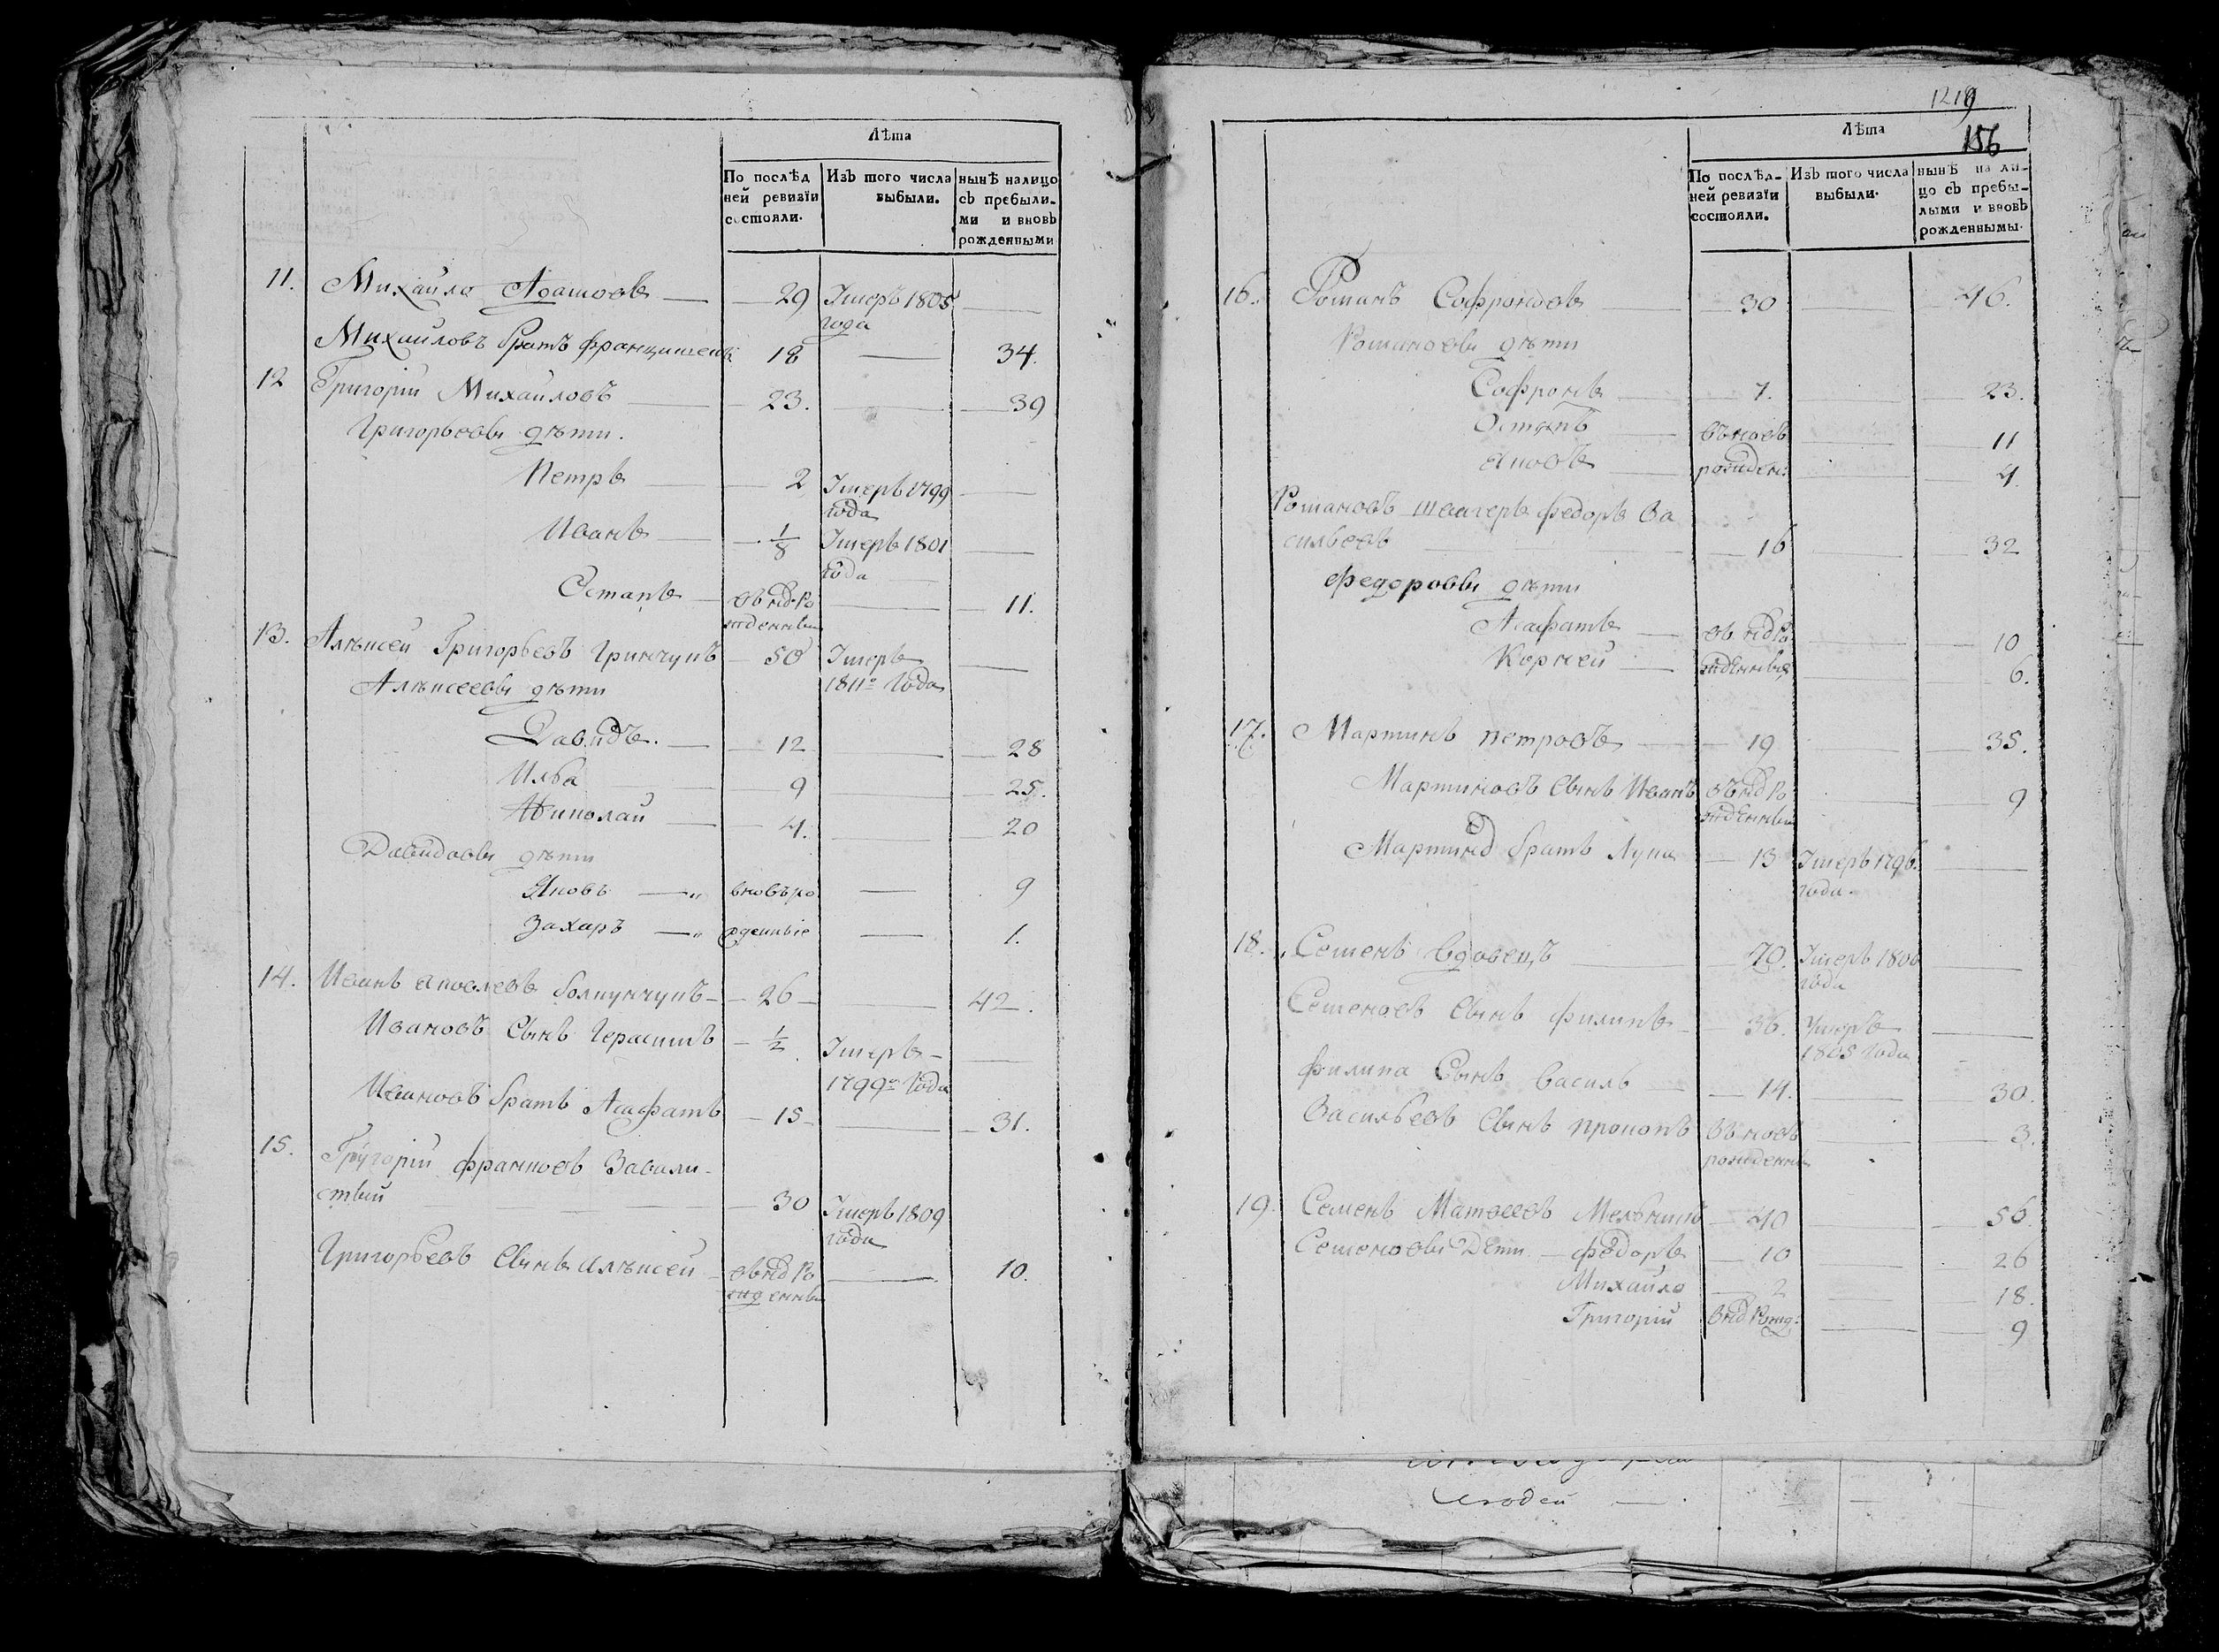 Лѣта
По послѣд
ней ревизїи
состояли.
Изъ того числа
выбыли.
нынѣ налицо
съ пребыли-
ми и вновь
рожденными
11. Михайло Адамовъ — 29 Умеръ 1805 —
года
Михайловъ братъ Францишекъ 18 — 34.
12 Григорій Михайловъ — 23. — 39
Григорьевы дѣти.
Петръ — 2 Умеръ 1799 —
года
Иванъ — 1/8 Умеръ 1801 —
года
Остапъ — вново Ро — 11.
жденный
13. Алексей Григорьевъ Гринчукъ — 50 Умеръ —
Алексеевы дѣти 1811го Года
Давидъ. — 12 — 28
Илья 9 — 25.
Николай — 4. — 20
Давидовы дѣти
Яковъ — вновъ ро — 9
Захаръ — жденные — 1.
14. Иванъ Яковлевъ — 26 — 42.
Ивановъ Сынъ Герасимъ — 1/2 Умеръ —
1799го Года
Ивановъ братъ Асафатъ — 15 — 31.
15. Григорій Франковъ Завали-
стый — 30 Умеръ 1809
года
Григорьевъ Сынъ Алексей — вново Ро — 10.
жденный
1219
156
Лѣта
По послѣд-
ней ревизїи
состояли.
Изъ того числа
выбыли.
нынѣ на ли-
цо съ пребы-
лыми и вновь
рожденными.
16. Романъ Софроновъ — 30 — 46.
Романовы дѣти
Софронъ — 7. — 23.
Остапъ — вьновъ — 11
Яковъ — рожден: — 4.
Романовъ швагеръ Федоръ Ва
сильевъ — 16 — 32
Федоровы дѣти
Асафатъ — вново Ро — 10
Корней — жденныя — 6.
17. Мартинъ Петровъ — 19 — 35.
Мартиновъ Сынъ Иванъ вьново Ро — 9
жденный
Мартина братъ Лука — 13 Умеръ 1796. —
года.
18. Семенъ Вдовецъ — 70. Умеръ 1800 —
года
Семеновъ Сынъ Филипъ — 36. Умеръ —
1805 Года
Филипа Сынъ Василь — 14. — 30.
Васильевъ Сынъ Прокопъ вьновъ — 3.
рожденный
19. Семенъ Матвеевъ Мельникъ — 40 — 56.
Семеновы Дети — Федоръ — 10 — 26
Михайло — 2 — 18.
Григорій вново Рожд: — 9
людей —